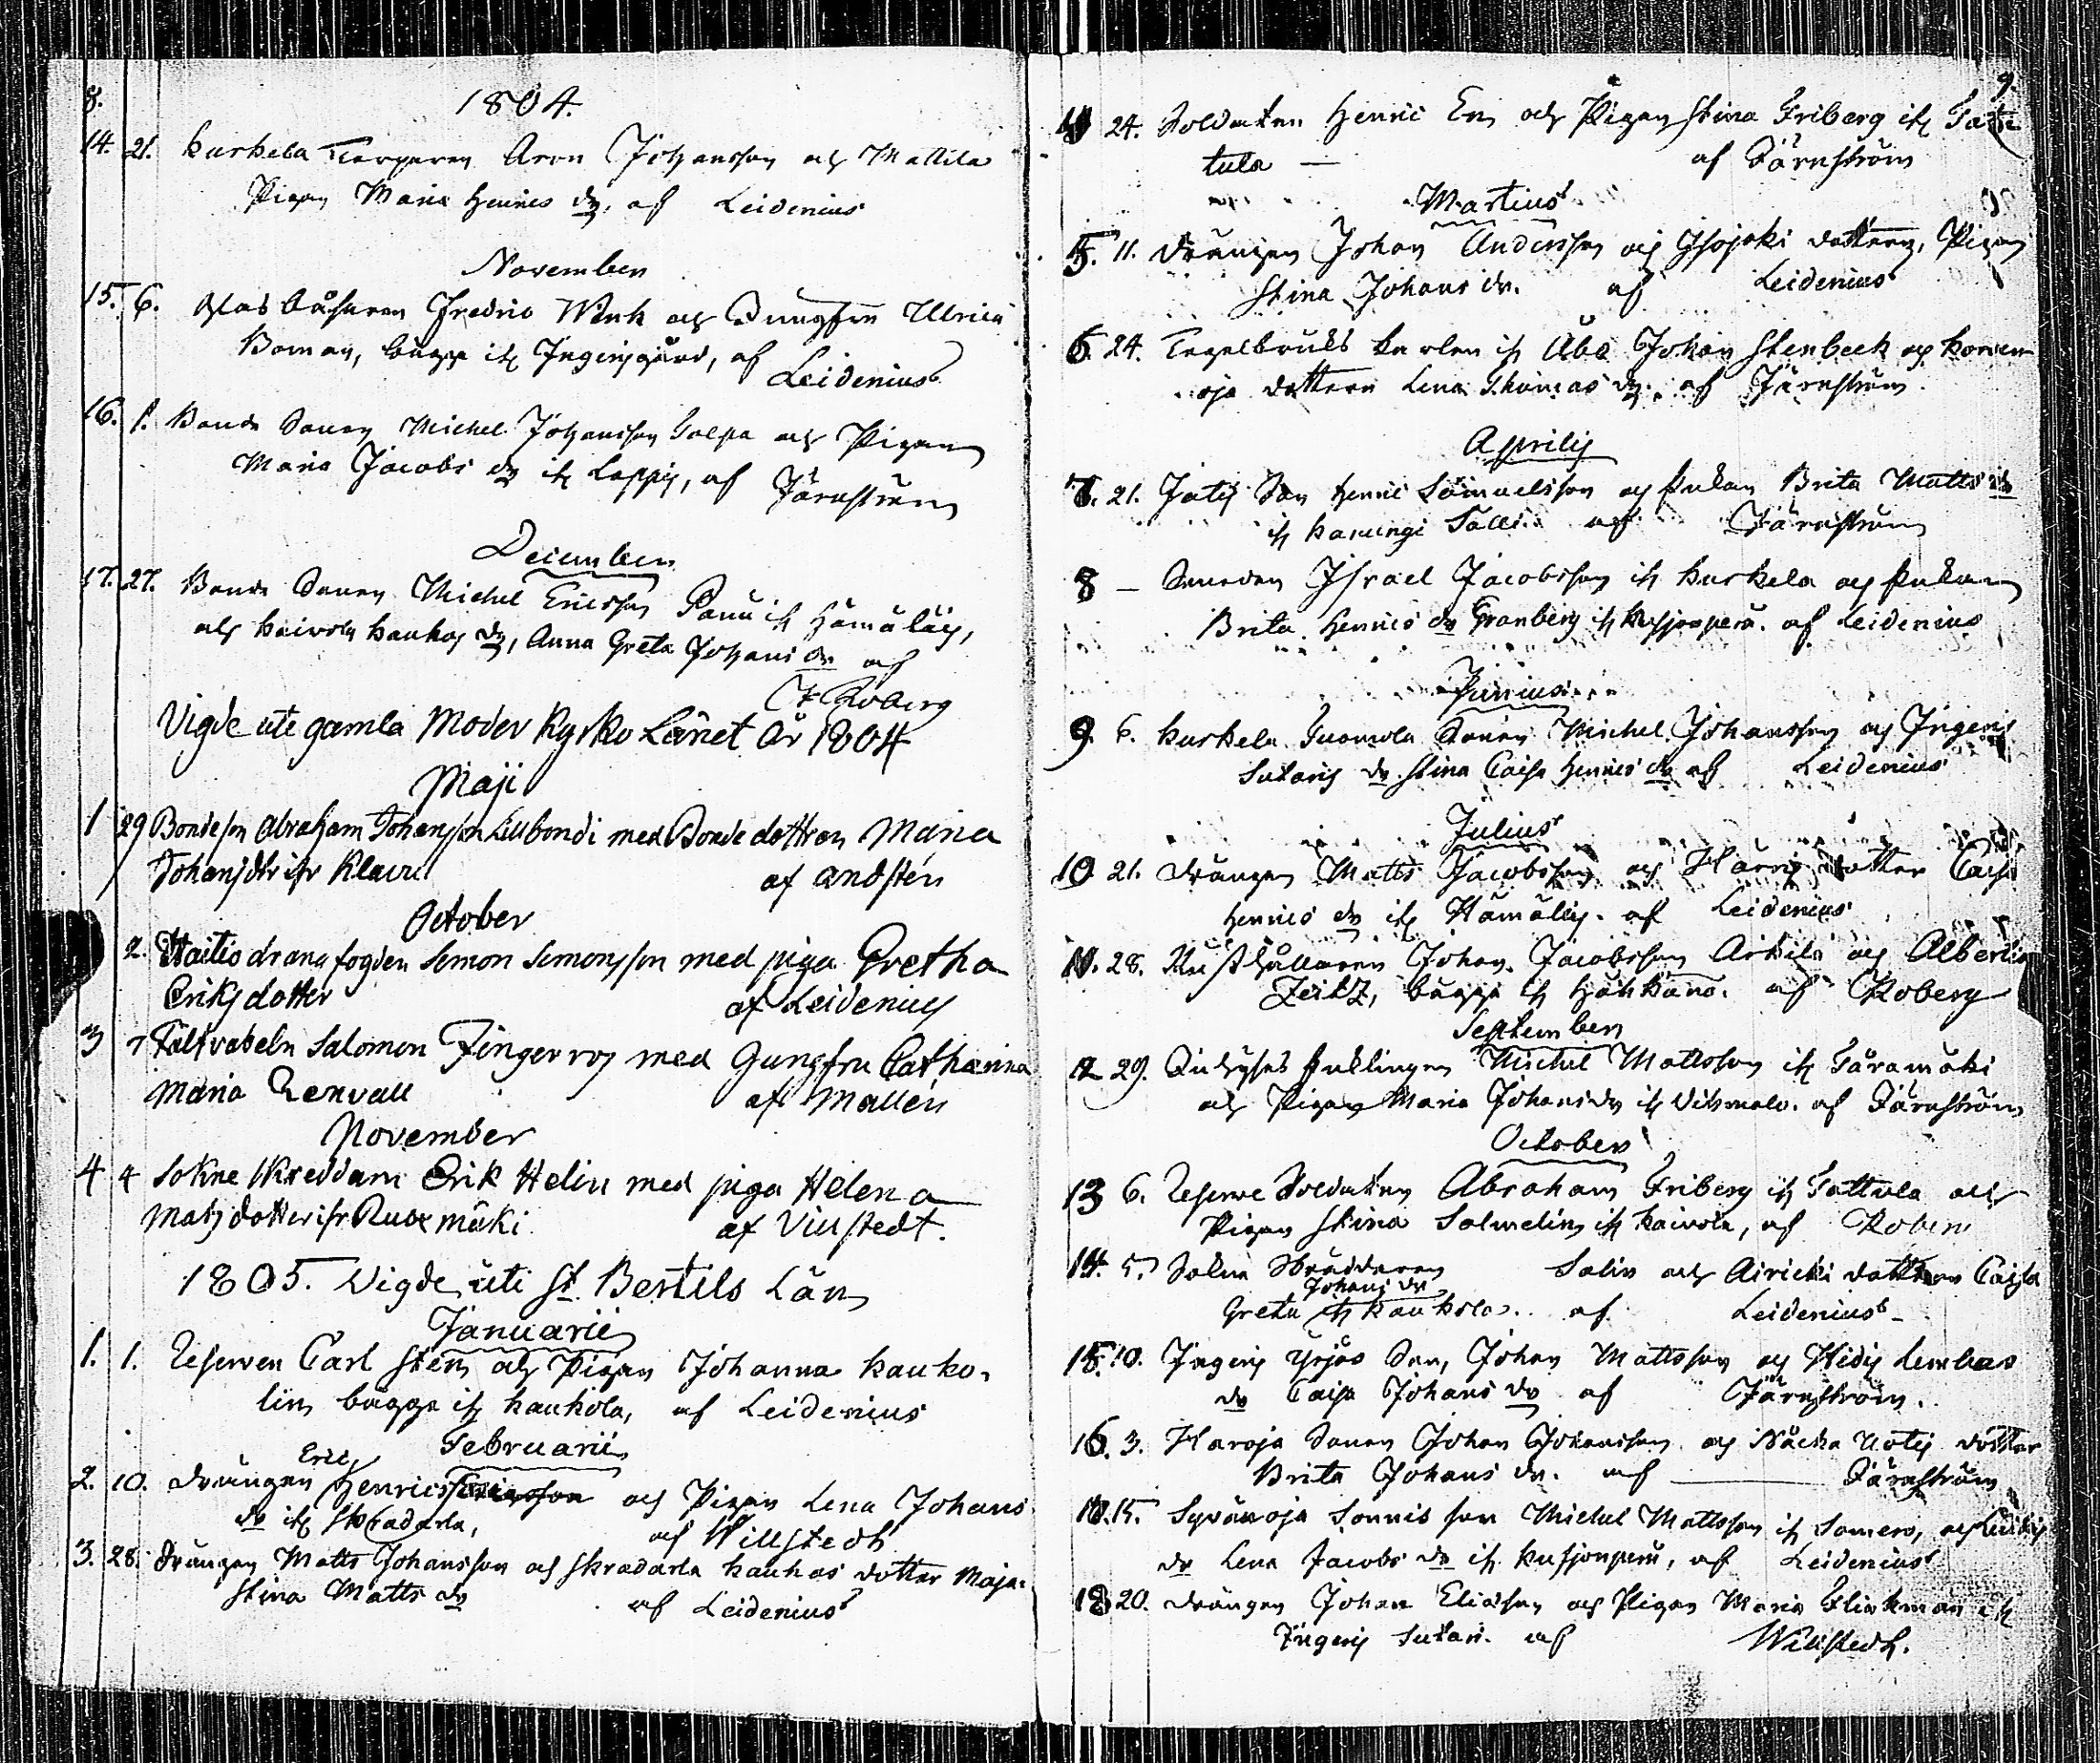 8.
1804.
14. 21. Kurkela Torparen Aron Johansson och Mattila
Pigan Maria Henrics dr. af Leidenius
November
15. 6. Glas Blåsaren Fredric Wenk och Jungfru Ulrica
Boman, bägge ifr Ingerisgård, af
Leidenius
16. 1. Bonde Sonen Michel Johansson Talpa och Pigan
Maria Jacobs dr ifr Lappis, af Järnström
December
17. 27. Bonde Sonen Michel Ericsson Panu ifr Hämäläis,
och Kaivola Kaukas dr, Anna Greta Johans dr af
Roberg
Vigde ute gamla Moder Kyrko Länet År 1804
Maji
1 29 Bondeson Abraham Johansson Lillbondi med Bonde dottren Maria
Johansdtr ifr Klavu af Andstén
October
2. Haitis drang fogden Semon Semonsson med piga Gretha
Eriksdotter af Leidenius
3 7 Fältvabeln Salomon Fingerroj med Jungfru Catharina
Maria Renvall af Mallén
November
4 4 Sokneskreddarn Erik Helin med piga Helena
Matsdotter ifr Ruoxmäki af Villstedt.
1805. Vigde uti St. Bertils Län
Januarii
1. 1. Reserven Carl Sten och Pigan Johanna Kauko-
lin bägge ifr Kaukola, af Leidenius
Februarii
Eric
2. 10. Drängen Henricsson Ericsson och Pigan Lena Johans
dr ifr Skradarla, af Willstedt
3. 28. Drängen Matts Johansson och Skradarla Kaukas dotter Maja
Stina Matts dr af Leidenius
9.
4 24. Soldaten Henric En och Pigan Stina Friberg ifr Tatt
tula — af Järnström
Martius
5. 11. Drängen Johan Andersson och Isojoki dottern, Pigan
Stina Johans dr. af Leidenius
6. 24. Tegelbruks karlen ifr Åbo Johan Stenbeck och Korven
oja dottern Lena Thomas dr. af Järnström
Aprilis
7. 21. Jatis Son Henric Samuelsson och Enkan Brita Matts dr
ifr Kanungi Salli af Järnström
8 — Smeden Israel Jacobsson ifr Kurkela och Enkan
Brita Henrics dr Granberg ifr Kusjonperä. af Leidenius
Junius
9. 6. Kurkela Tuomola Sonen Michel Johansson och Ingeris
Sutaris dr Stina Caisa Henrics dr af Leidenius
Julius
10 21. Drängen Matts Jacobsson och Harris dotter Caisa
Henrics dr ifr Hämäläis. af Leidenius
11. 28. Rusthållaren Johan Jacobsson Arkila och Albertina
Zeitz, bägge ifr Hähkänä. af Roberg
September
12 29. Inhyses Enklingen Michel Mattsson ifr Taramäki
och Pigan Maria Johansdr ifr Vihmalo. af Järnström
October
13 6. Reserve Soldaten Abraham Friberg ifr Tattula och
Pigan Stina Salmelin ifr Kaivola, af Roberg
14. 5. Sokne Skräddaren Salin och Airicki dottern Caisa
Johans dr
Greta ifr Kaukola. af Leidenius
15. 10. Ingeris Yrjös Son, Johan Mattsson och Hidis Lembas
dr Caisa Johans dr af Järnström.
16. 3. Haroja Sonen Johan Johansson och Näcka Uotis dotter
Brita Johans dr. af — Järnström
15. Syvänoja Sonnis son Michel Mattsson ifr Somero, och
dr Lena Jacobs dr ifr Kusjonperä, af Leidenius
18 20. Drängen Johan Eliasson och Pigan Maria Flinkman ifr
Ingeris Sutari. af Willstedt.